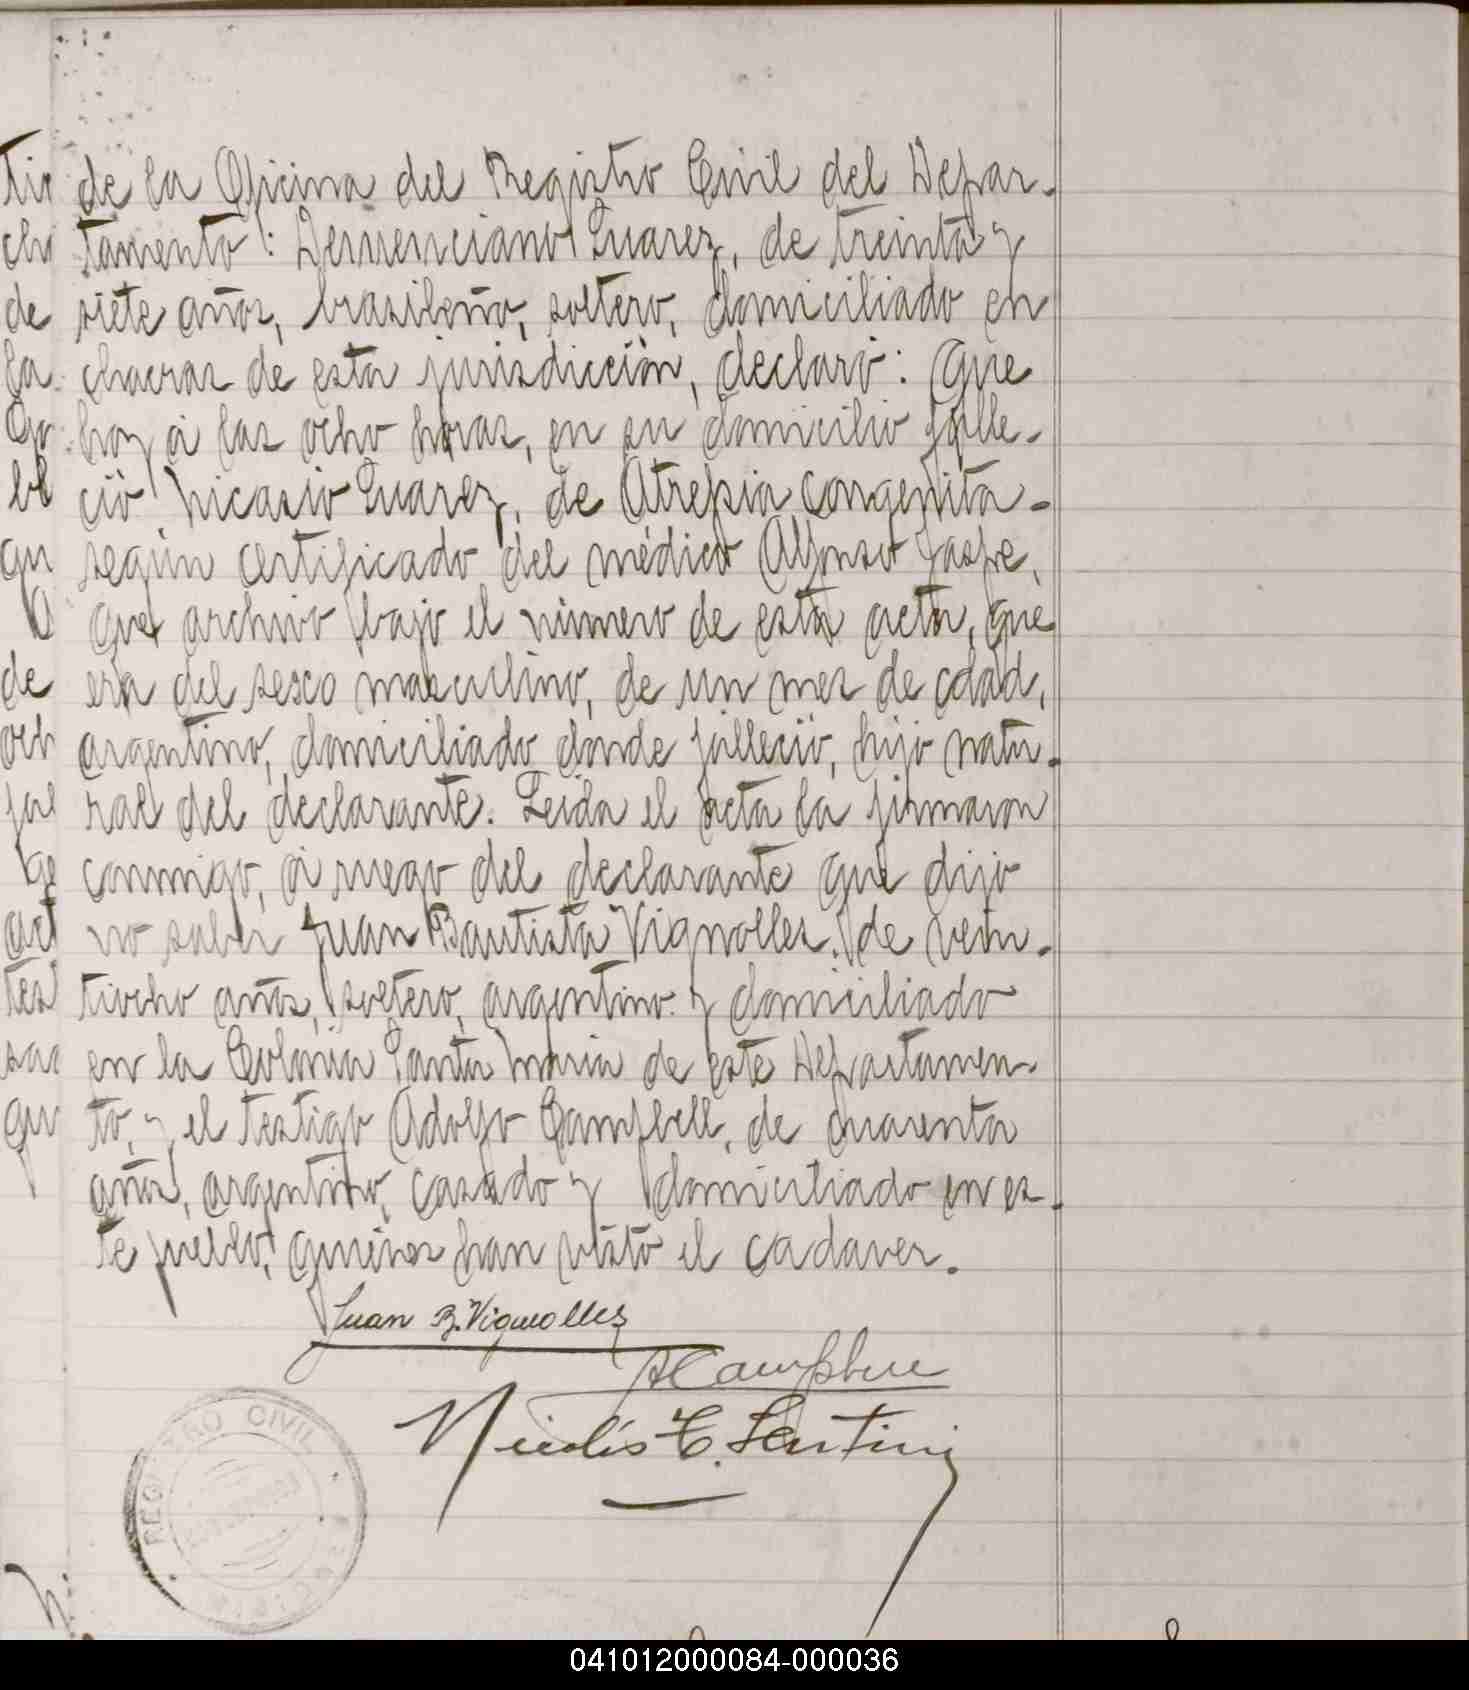 de la Oficina del Registro Civil del Depar-
tamento: Suarez, de treinta y
siete años, brasileño, soltero, domiciliado en
chacras de esta jurisdicción, declaró: Que
hoy á las ocho horas, en su domicilio falle-
ció Nicasio Suarez, de Atrepsia congenita-
según certificado del médico Alfonso Jaspe,
que archivo bajo el número de esta acta, que
era del sesco masculino, de un mes de edad,
argentino, domiciliado donde falleció, hijo natu-
ral del declarante. Leida el acta la firmaron
conmigo, á ruego del declarante que dijo
no saber Juan Bautista Vignolles, de vein-
tiocho años, soltero, argentino y domiciliado
en la Colonia Santa Maria de este Departamen-
to, y el testigo Adolfo Campbell, de cuarenta
años, argentino, casado y domiciliado en es-
te pueblo, quienes han visto el cadaver.
Juan B. Vignolles
A Campbell
Nicolás C.
REGISTRO CIVIL
041012000084-000036